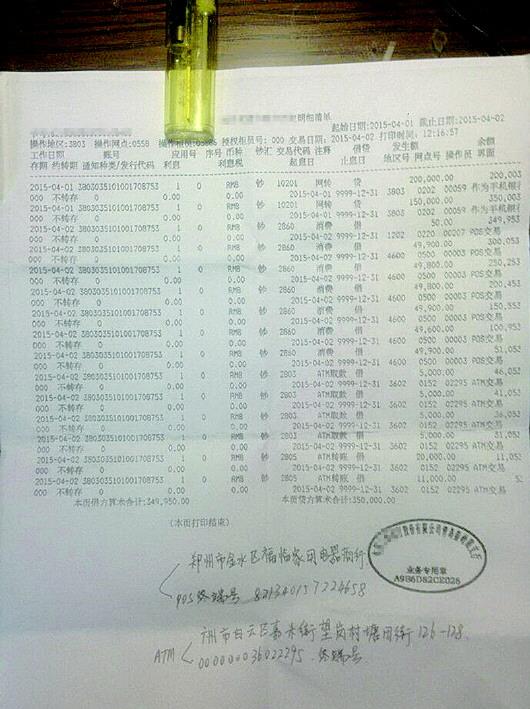 明细清单
起始日期:2015-04-01 截止日期:2015-04-02
操作地区:3803 操作网点:0558 授权柜员号: 000 交易日期: 2015-04-02 打印时间: 12:16:57
工作日期 账号 应用号 序号 币种 钞汇 交易代码 注释 借贷 发生额 余额
存期 约转期 通知种类/发行代码 利息 利息税 起息日 止息日 地区号 网点号 操作员 界面
2015-04-01 3803035101001708753 1 0 RMB 钞 10201 网转 贷 200,000.00 200,003
000 不转存 0 0.00 0.00 2015-04-01 9999-12-31 3803 0202 00059 作为手机银行
2015-04-01 3803035101001708753 1 0 RMB 钞 10201 网转 贷 150,000.00 350,003
000 不转存 0 0.00 0.00 2015-04-01 9999-12-31 3803 0202 00059 作为手机银行
2015-04-01 3803035101001708753 1 0 RMB 钞 2860 消费 借 50.00 349,953
000 不转存 0 0.00 0.00 2015-04-02 9999-12-31 1202 0220 00207 POS交易
2015-04-02 3803035101001708753 1 0 RMB 钞 2860 消费 借 49,900.00 300,053
000 不转存 0 0.00 0.00 2015-04-02 9999-12-31 4600 0500 00003 POS交易
2015-04-02 3803035101001708753 1 0 RMB 钞 2860 消费 借 49,800.00 250,253
000 不转存 0 0.00 0.00 2015-04-02 9999-12-31 4600 0500 00003 POS交易
2015-04-02 3803035101001708753 1 0 RMB 钞 2860 消费 借 49,800.00 200,453
000 不转存 0 0.00 0.00 2015-04-02 9999-12-31 4600 0500 00003 POS交易
2015-04-02 3803035101001708753 1 0 RMB 钞 2860 消费 借 49,900.00 150,553
000 不转存 0 0.00 0.00 2015-04-02 9999-12-31 4600 0500 00003 POS交易
2015-04-02 3803035101001708753 1 0 RMB 钞 2860 消费 借 49,600.00 100,953
000 不转存 0 0.00 0.00 2015-04-02 9999-12-31 4600 0500 00003 POS交易
2015-04-02 3803035101001708753 1 0 RMB 钞 2860 消费 借 49,900.00 51,053
000 不转存 0 0.00 0.00 2015-04-02 9999-12-31 4600 0500 00003 POS交易
2015-04-02 3803035101001708753 1 0 RMB 钞 2803 ATM取款 借 5,000.00 46,053
000 不转存 0 0.00 0.00 2015-04-02 9999-12-31 3602 0152 02295 ATM交易
2015-04-02 3803035101001708753 1 0 RMB 钞 2803 ATM取款 借 5,000.00 41,053
000 不转存 0 0.00 0.00 2015-04-02 9999-12-31 3602 0152 02295 ATM交易
2015-04-02 3803035101001708753 1 0 RMB 钞 2803 ATM取款 借 5,000.00 36,053
000 不转存 0 0.00 0.00 2015-04-02 9999-12-31 3602 0152 02295 ATM交易
2015-04-02 3803035101001708753 1 0 RMB 钞 2803 ATM取款 借 5,000.00 31,053
000 不转存 0 0.00 0.00 2015-04-02 9999-12-31 3602 0152 02295 ATM交易
2015-04-02 3803035101001708753 1 0 RMB 钞 2805 ATM转账 借 20,000.00 11,053
000 不转存 0 0.00 0.00 2015-04-02 9999-12-31 3602 0152 02295 ATM交易
2015-04-02 3803035101001708753 1 0 RMB 钞 2805 ATM转账 借 11,000.00
000 不转存 0 0.00 0.00 2015-04-02 9999-12-31 3602 0152 02295 ATM交易
本页借方算术合计:349,950.00 本页贷方算术合计:350,000.00
(本页打印结束)
业务专用章
A9B6D82CE028
郑州市金水区福临家用电器商行
POS终端号 821340157224658
州市白云区嘉禾街望岗村塘田街 126-128
ATM 000000036022295 终端号